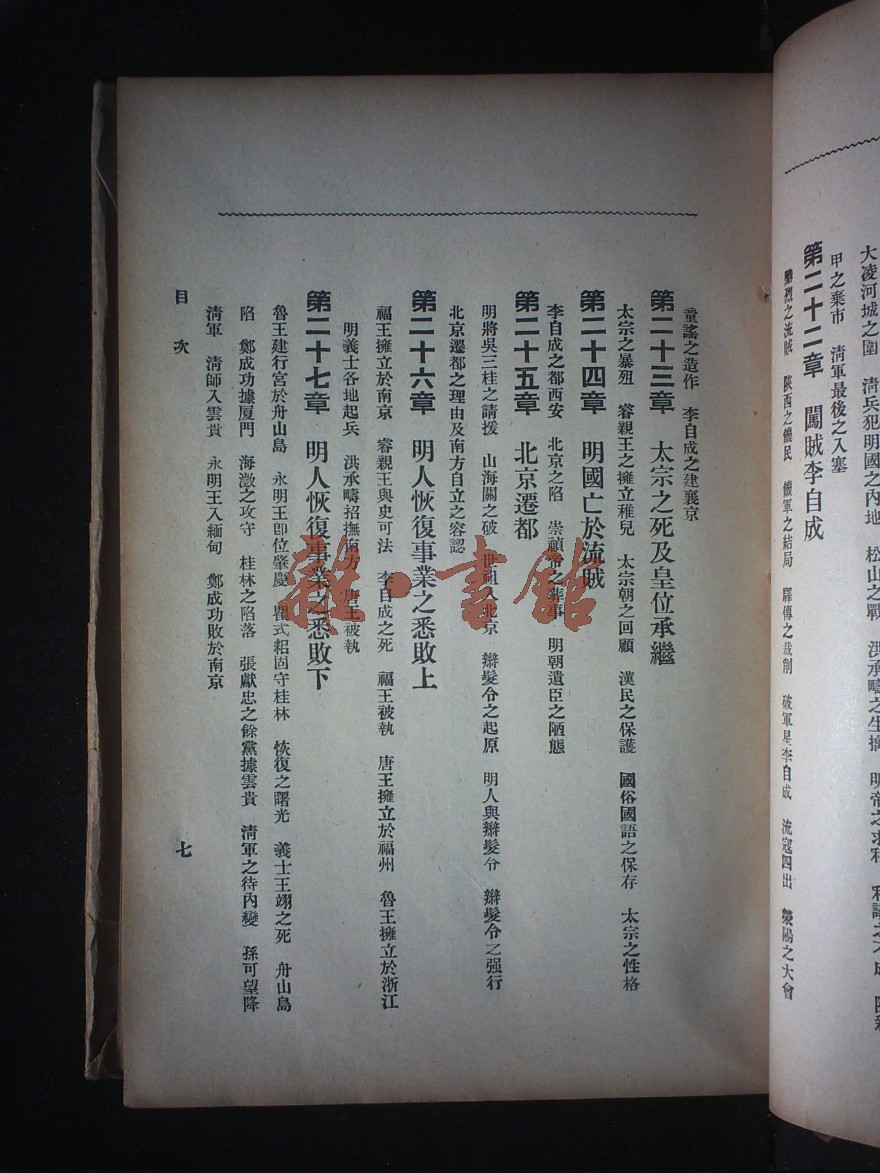 大凌河城之圍　清兵犯明國之內地　松山之戰　洪承疇之生擒　明帝之求和　和議之不成
甲之棄市　清軍最後之入塞
第二十二章　闖賊李自成
慘烈之流賊　陝西之饑民　饑軍之結局　驛傳之裁削　破軍星李自成　流寇四出　滎陽之大會
童謠之造作　李自成之建襄京
第二十三章　太宗之死及皇位承繼
太宗之暴殂　睿親王之擁立稚兒　太宗朝之回顧　漢民之保護　國俗國語之保存　太宗之性格
第二十四章　明國亡於流賊
李自成之都西安　北京之陷　崇禎帝之葬事　明朝遺臣之陋態
第二十五章　北京遷都
明將吳三桂之請援　山海關之破　世祖入北京　辮髮令之起原　明人與辮髮令　辮髮令之强行
北京遷都之理由及南方自立之容認
第二十六章　明人恢復事業之悉敗上
福王擁立於南京　睿親王與史可法　李自成之死　福王被執　唐王擁立於福州　魯王擁立於浙江
明義士各地起兵　洪承疇招撫南方　唐王被執
第二十七章　明人恢復事業之悉敗下
魯王建行宮於舟山島　永明王卽位肇慶　瞿式耜固守桂林　恢復之曙光　義士王翊之死　舟山島
陷　鄭成功據厦門　海澂之攻守　桂林之陷落　張獻忠之餘黨據雲貴　淸軍之待內變　孫可望降
淸軍　淸師入雲貴　永明王入緬甸　鄭成功敗於南京
目次
七
雜·書館